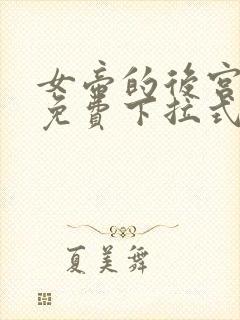 女帝的後宮
免費下拉式
夏美舞